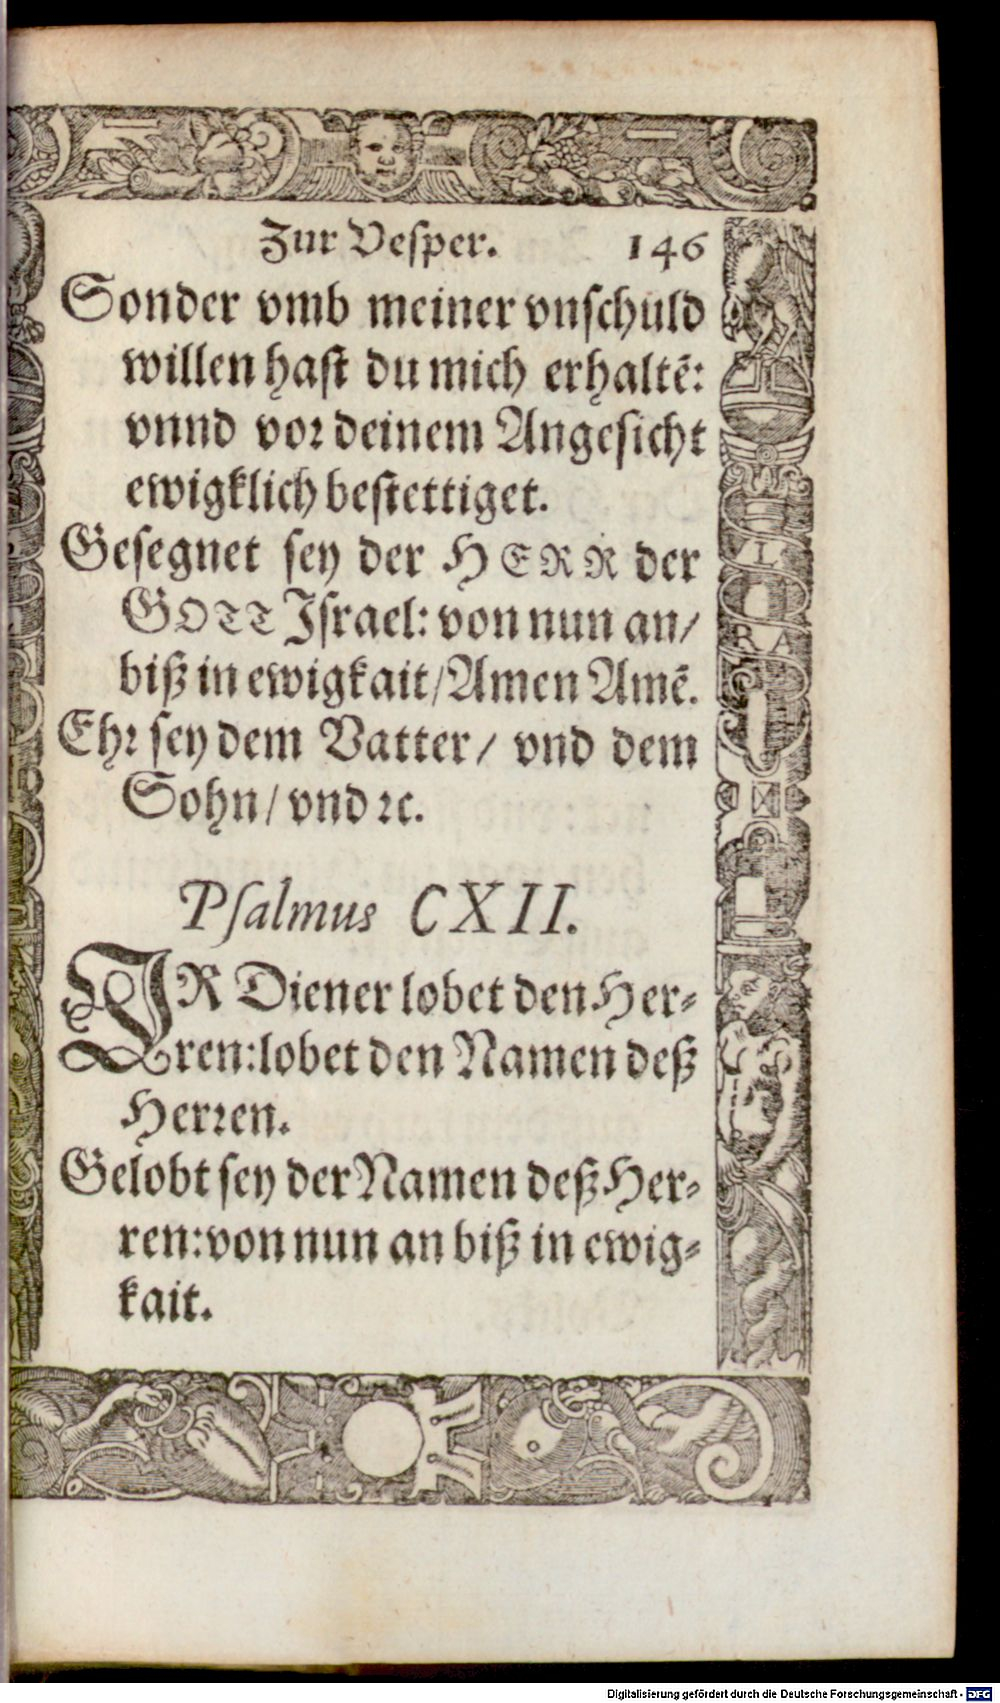 Zur Vesper. 146
Sonder vmb meiner vnſchuld
willen haſt du mich erhaltē:
vnnd voꝛ deinem Angeſicht
ewigklich beſtettiget.
Geſegnet ſey der HERR der
GOTT Iſrael: von nun an/
biß in ewigkait/ Amen Amē.
Ehꝛ ſey dem Vatter/ vnd dem
Sohn/ vnd ꝛc.
Pſalmus CXII.
IR Diener lobet den Her⸗
ren: lobet den Namen deß
Herꝛen.
Gelobt ſey der Namen deß Her⸗
ren: von nun an biß in ewig⸗
kait.
L
RA
Digitalisierung gefördert durch die Deutsche Forschungsgemeinschaft - DFG